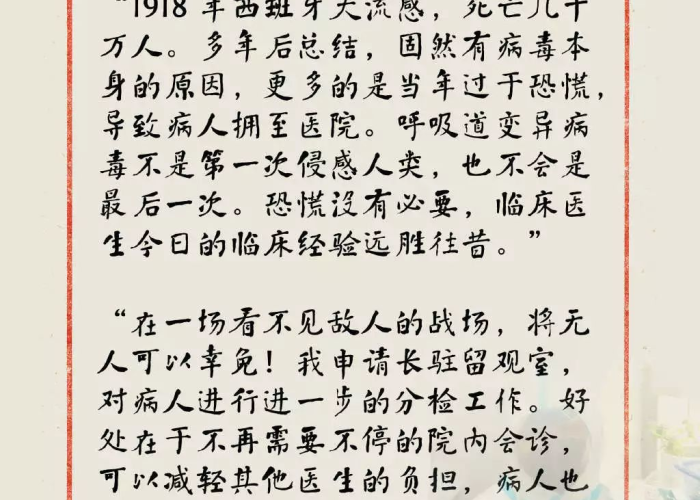 “1918 年西班牙大流感，死亡几千
万人。多年后总结，固然有病毒本
身的原因，更多的是当年过于恐慌，
导致病人拥至医院。呼吸道变异病
毒不是第一次侵感人类，也不会是
最后一次。恐慌没有必要，临床医
生今日的临床经验远胜往昔。”
“在一场看不见敌人的战场，将无
人可以幸免！我申请长驻留观室，
对病人进行进一步的分检工作。好
处在于不再需要不停的院内会诊，
可以减轻其他医生的负担，病人也